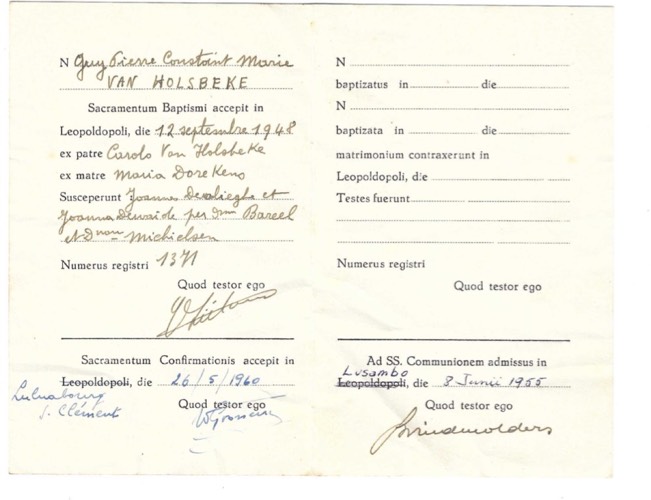 N Guy Pierre Constant Marie
VAN HOLSBEKE
Sacramentum Baptismi accepit in
Leopoldopoli, die 12 septembre 1948
ex patre Carolo Van Holsbeke
ex matre Maria Dorekens
Susceperunt Joannes et
Joanna per Bareel
et Michielsen
Numerus registri 1371
Quod testor ego
Sacramentum Confirmationis accepit in
Leopoldopoli, die 26/5/1960
Luluabourg
S. Clément
Quod testor ego
N
baptizatus in die
N
baptizata in die
matrimonium contraxerunt in
Leopoldopoli, die
Testes fuerunt
Numerus registri
Quod testor ego
Ad SS. Communionem admissus in
Lusambo
Leopoldopoli, die 8 Junii 1955
Quod testor ego